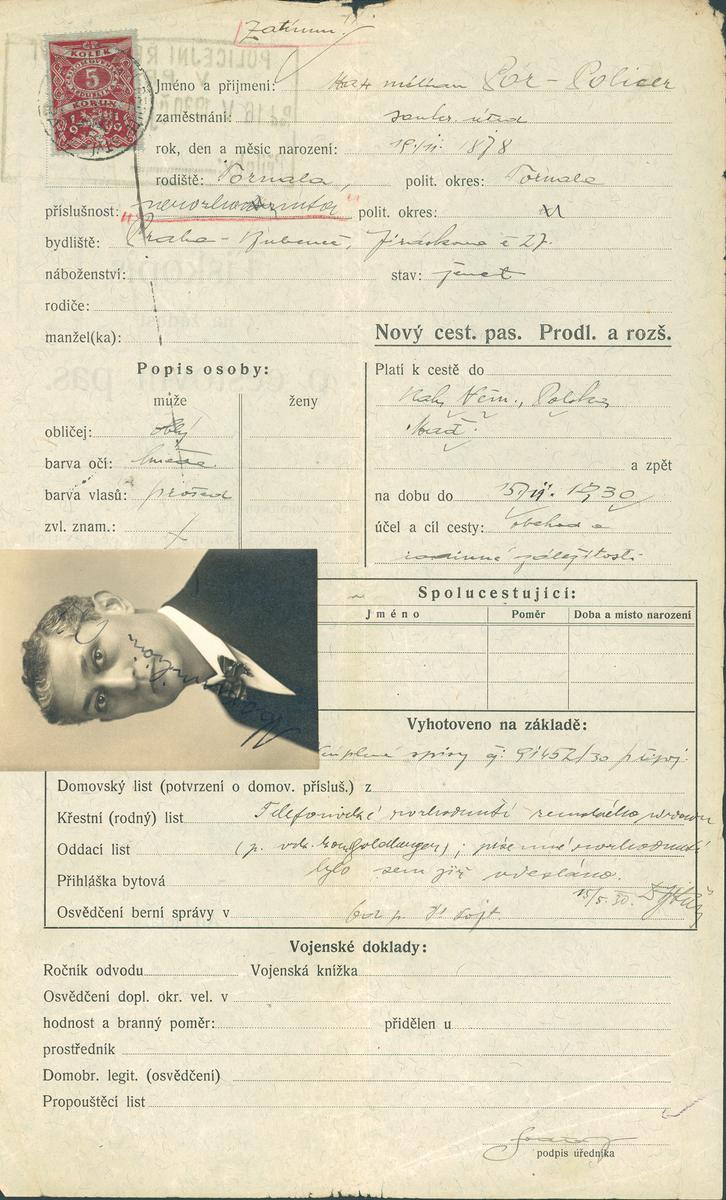 KOLEK
5
KORUN
1919
Jméno a příjmení: Pór - Policer
zaměstnání: soukr. úřed
rok, den a měsíc narození: 19./II. 1878
rodiště: Tornala, polit. okres: Tornala
příslušnost: polit. okres:
bydliště: Praha - Bubeneč, Jiráskova č 27.
náboženství: stav: ženat
rodiče:
manžel(ka):
Nový cest. pas. Prodl. a rozš.
Popis osoby:
muže ženy
obličej:
barva očí: hnědé
barva vlasů: prošed
zvl. znam.:
Platí k cestě do
Něm., Polska
Maď.
a zpět
na dobu do 15/II. 1930
účel a cíl cesty: obchod a
rodinné záležitosti
Spolucestující:
Jméno Poměr Doba a místo narození
Vyhotoveno na základě:
spisy čj. 91452/30
Domovský list (potvrzení o domov. přísluš.) z
Křestní (rodný) list Telefonické rozhodnutí zemského
Oddací list písemné rozhodnutí
Přihláška bytová bylo sem již odesláno.
15/5. 30.
Osvědčení berní správy v
Vojenské doklady:
Ročník odvodu Vojenská knížka
Osvědčení dopl. okr. vel. v
hodnost a branný poměr: přidělen u
prostředník
Domobr. legit. (osvědčení)
Propouštěcí list
podpis úředníka